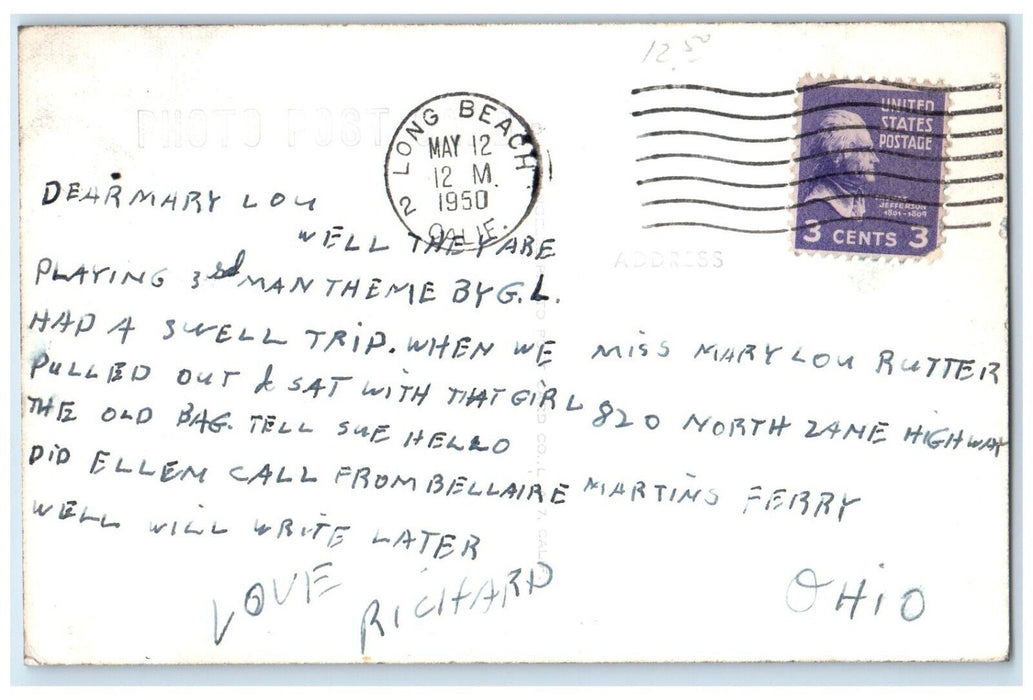 12.50
PHOTO POST
2 LONG BEACH
MAY 12
12 M.
1950
CALIF.
UNITED
STATES
POSTAGE
JEFFERSON
1801-1809
3 CENTS 3
ADDRESS
DEAR MARY LOU
WELL THEY ARE
PLAYING 3rd MAN THEME BY G.L.
HAD A SWELL TRIP. WHEN WE
PULLED OUT I SAT WITH THAT GIRL
THE OLD BAG. TELL SUE HELLO
DID ELLEN CALL FROM BELLAIRE
WELL WILL WRITE LATER
LOVE
RICHARD
MISS MARY LOU RUTTER
820 NORTH ZANE HIGHWAY
MARTINS FERRY
OHIO